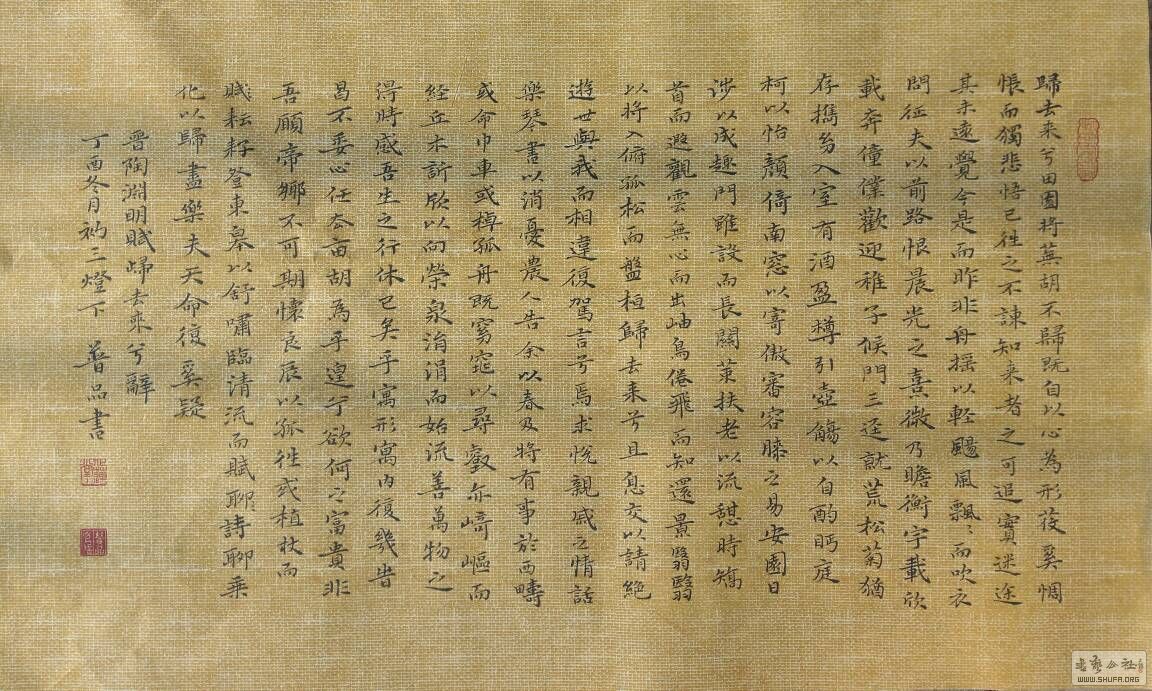 歸去来兮田園將蕪胡不歸既自以心為形役奚惆
悵而獨悲悟已往之不諫知来者之可追實迷途
其未遠覺今是而昨非舟搖以輕颺風飄〻而吹衣
問征夫以前路恨晨光之熹微乃瞻衡宇載欣
載奔僮僕歡迎稚子候門三逕就荒松菊猶
存携幼入室有酒盈樽引壺觴以自酌眄庭
柯以怡顏倚南窓以寄傲審容膝之易安園日
涉以成趣門雖設而長關策扶老以流憇時矯
首而遐觀雲無心而出岫鳥倦飛而知還景翳翳
以將入俯孤松而盤桓歸去来兮且息交以請絕
遊世與我而相違復駕言兮焉求悅親戚之情話
樂琴書以消憂農人告余以春及將有事於西疇
或命巾車或棹孤舟既窈窕以尋壑亦崎嶇而
經丘木訢欣以向榮泉涓涓而始流善萬物之
得時感吾生之行休已矣乎寓形寓内復幾旹
曷不委心任厺畱胡為乎遑兮欲何之富貴非
吾願帝鄉不可期懷良辰以孤往或植杖而
耘耔登東皋以舒嘯臨清流而賦聊詩聊乘
化以歸盡樂夫天命復奚疑
晉陶淵明賦歸去来兮辭
丁酉冬月衲三燈下 普品書
WWW.SHUFA.ORG